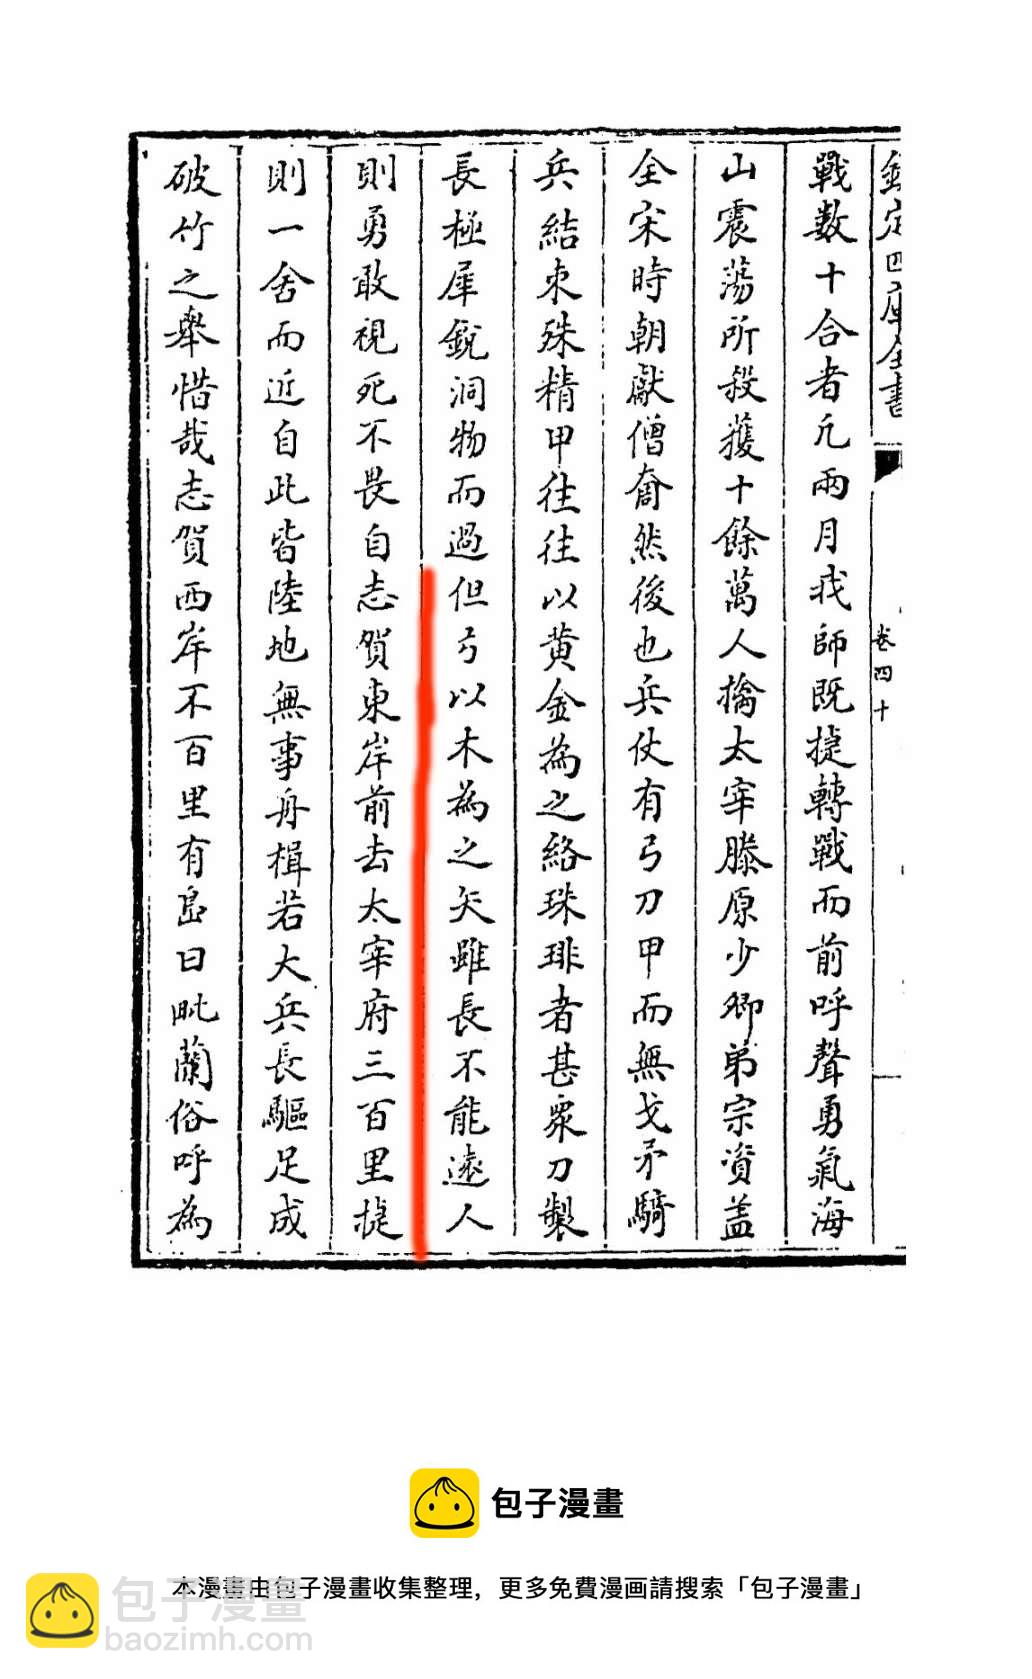 欽定四庫全書
卷四十
戰數十合者凢兩月我師既捷轉戰而前呼聲勇氣海
山震蕩所殺獲十餘萬人擒太宰滕原少卿弟宗資盖
全宋時朝獻僧奝然後也兵仗有弓刀甲而無戈矛騎
兵結束殊精甲往往以黄金為之絡珠琲者甚衆刀製
長極犀銳洞物而過但弓以木為之矢雖長不能遠人
則勇敢視死不畏自志賀東岸前去太宰府三百里捷
則一舍而近自此皆陸地無事舟楫若大兵長驅足成
破竹之舉惜哉志賀西岸不百里有島曰毗蘭俗呼為
包子漫畫
本漫畫由包子漫畫收集整理，更多免費漫画請搜索「包子漫畫」
包子漫畫
baozimh.com